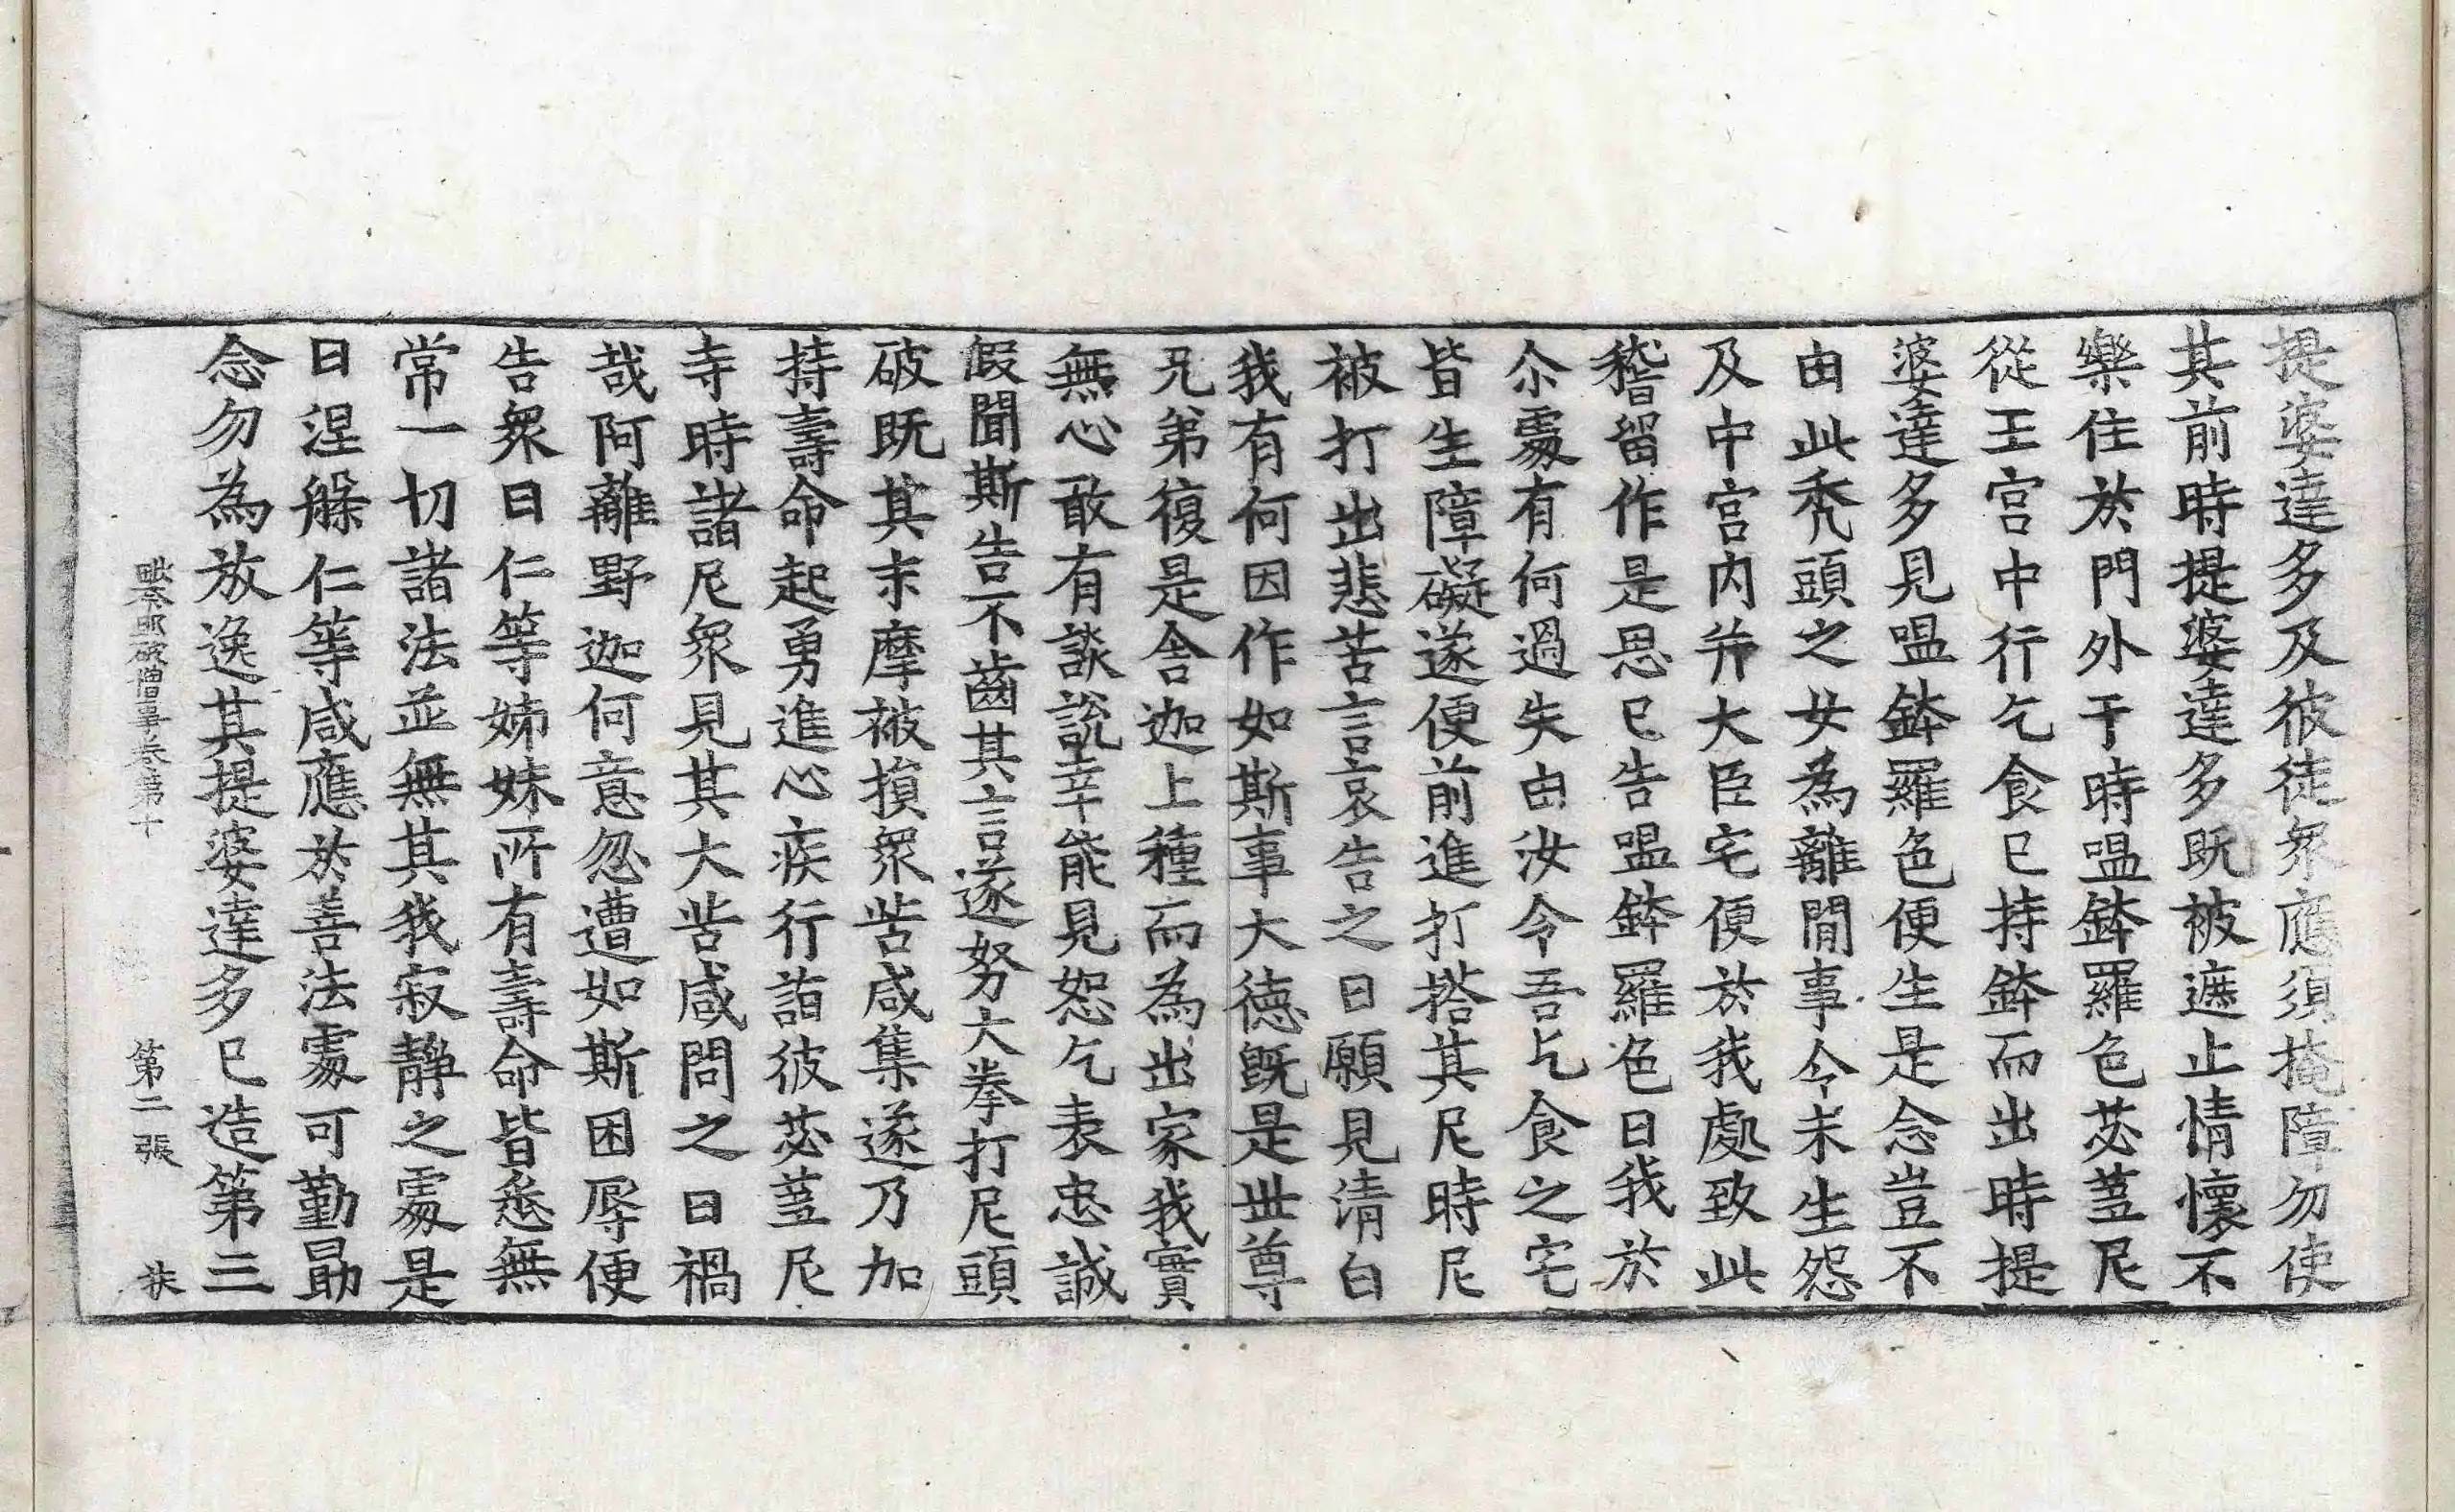 提婆達多及彼徒衆應須掩障勿使
其前時提婆達多既被遮止情懷不
樂住於門外于時嗢鉢羅色苾蒭尼
從王宮中行乞食已持鉢而出時提
婆達多見嗢鉢羅色便生是念豈不
由此禿頭之女為離間事今未生怨
及中宮内并大臣宅便於我處致此
稽留作是思已告嗢鉢羅色曰我於
尒處有何過失由汝令吾乞食之宅
皆生障礙遂便前進打搭其尼時尼
被打出悲苦言哀告之曰願見清白
我有何因作如斯事大德既是世尊
兄弟復是舍迦上種而為出家我實
無心敢有談說幸能見恕乞表忠誠
假聞斯告不齒其言遂努大拳打尼頭
破既其末摩被損衆苦咸集遂乃加
持壽命起勇進心疾行詣彼苾蒭尼
寺時諸尼衆見其大苦咸問之曰禍
哉阿離野迦何意忽遭如斯困辱便
告衆曰仁等姊妹所有壽命皆悉無
常一切諸法並無其我寂靜之處是
曰涅槃仁等咸應於善法處可勤勗
念勿為放逸其提婆達多已造第三
毗奈耶破僧事卷第十　第二張　扶